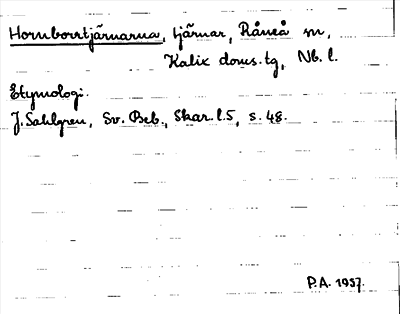 Hornborrtjärnarna, tjärnar, Råneå sn,
Kalix doms.tg, Nb. l.
Etymologi.
J. Sahlgren, Sv. Beb., Skar. l. 5, s. 48.
P.A. 1937.